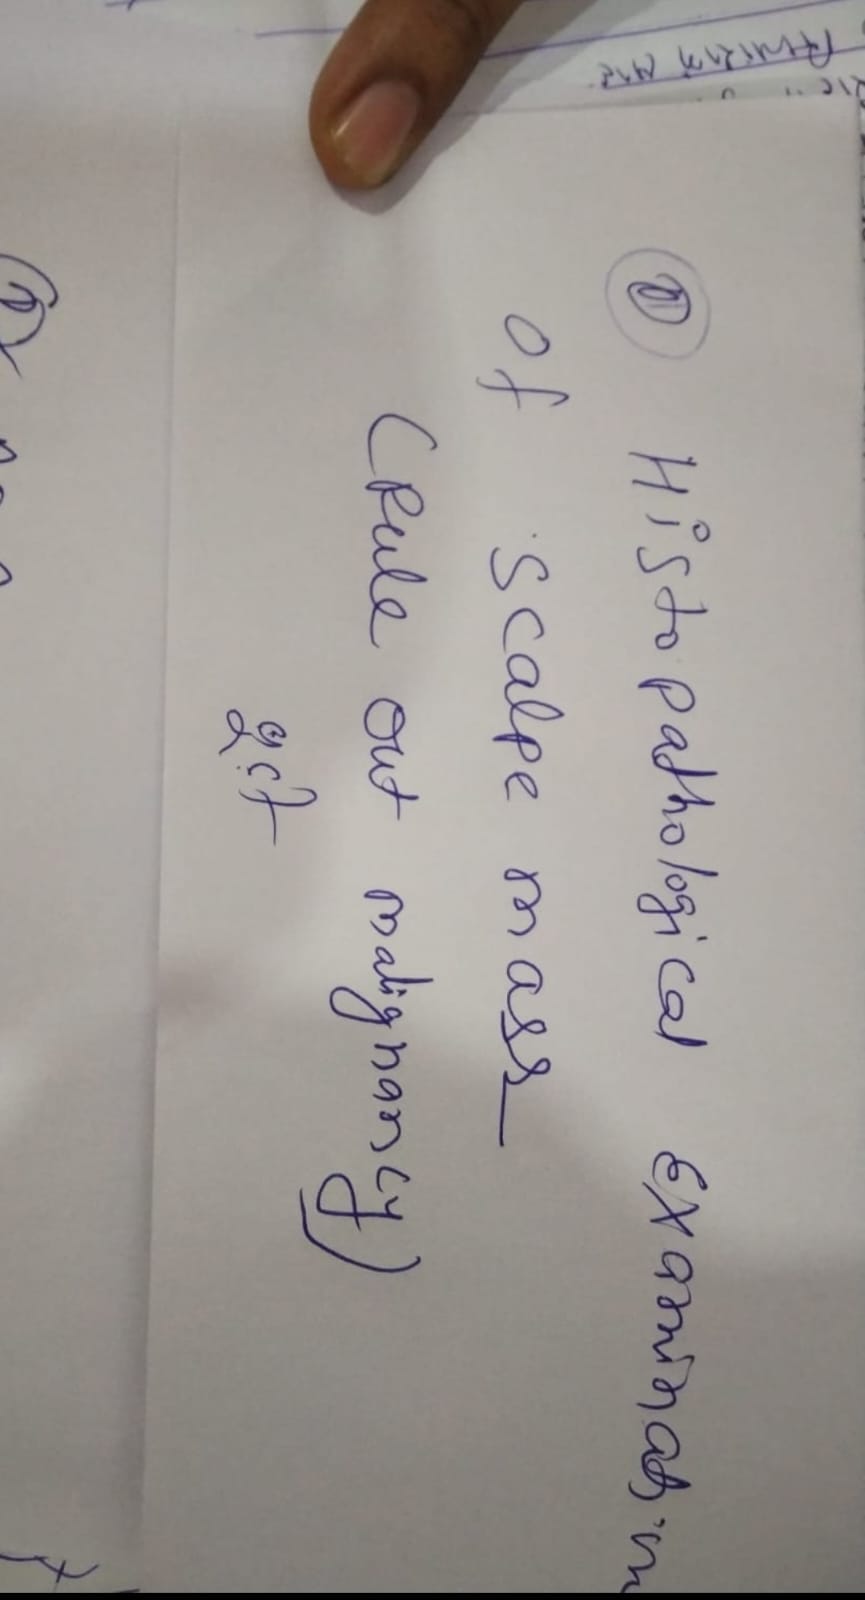 ① Histopathological Examination
of scalpe mass
(Rule out malignancy)